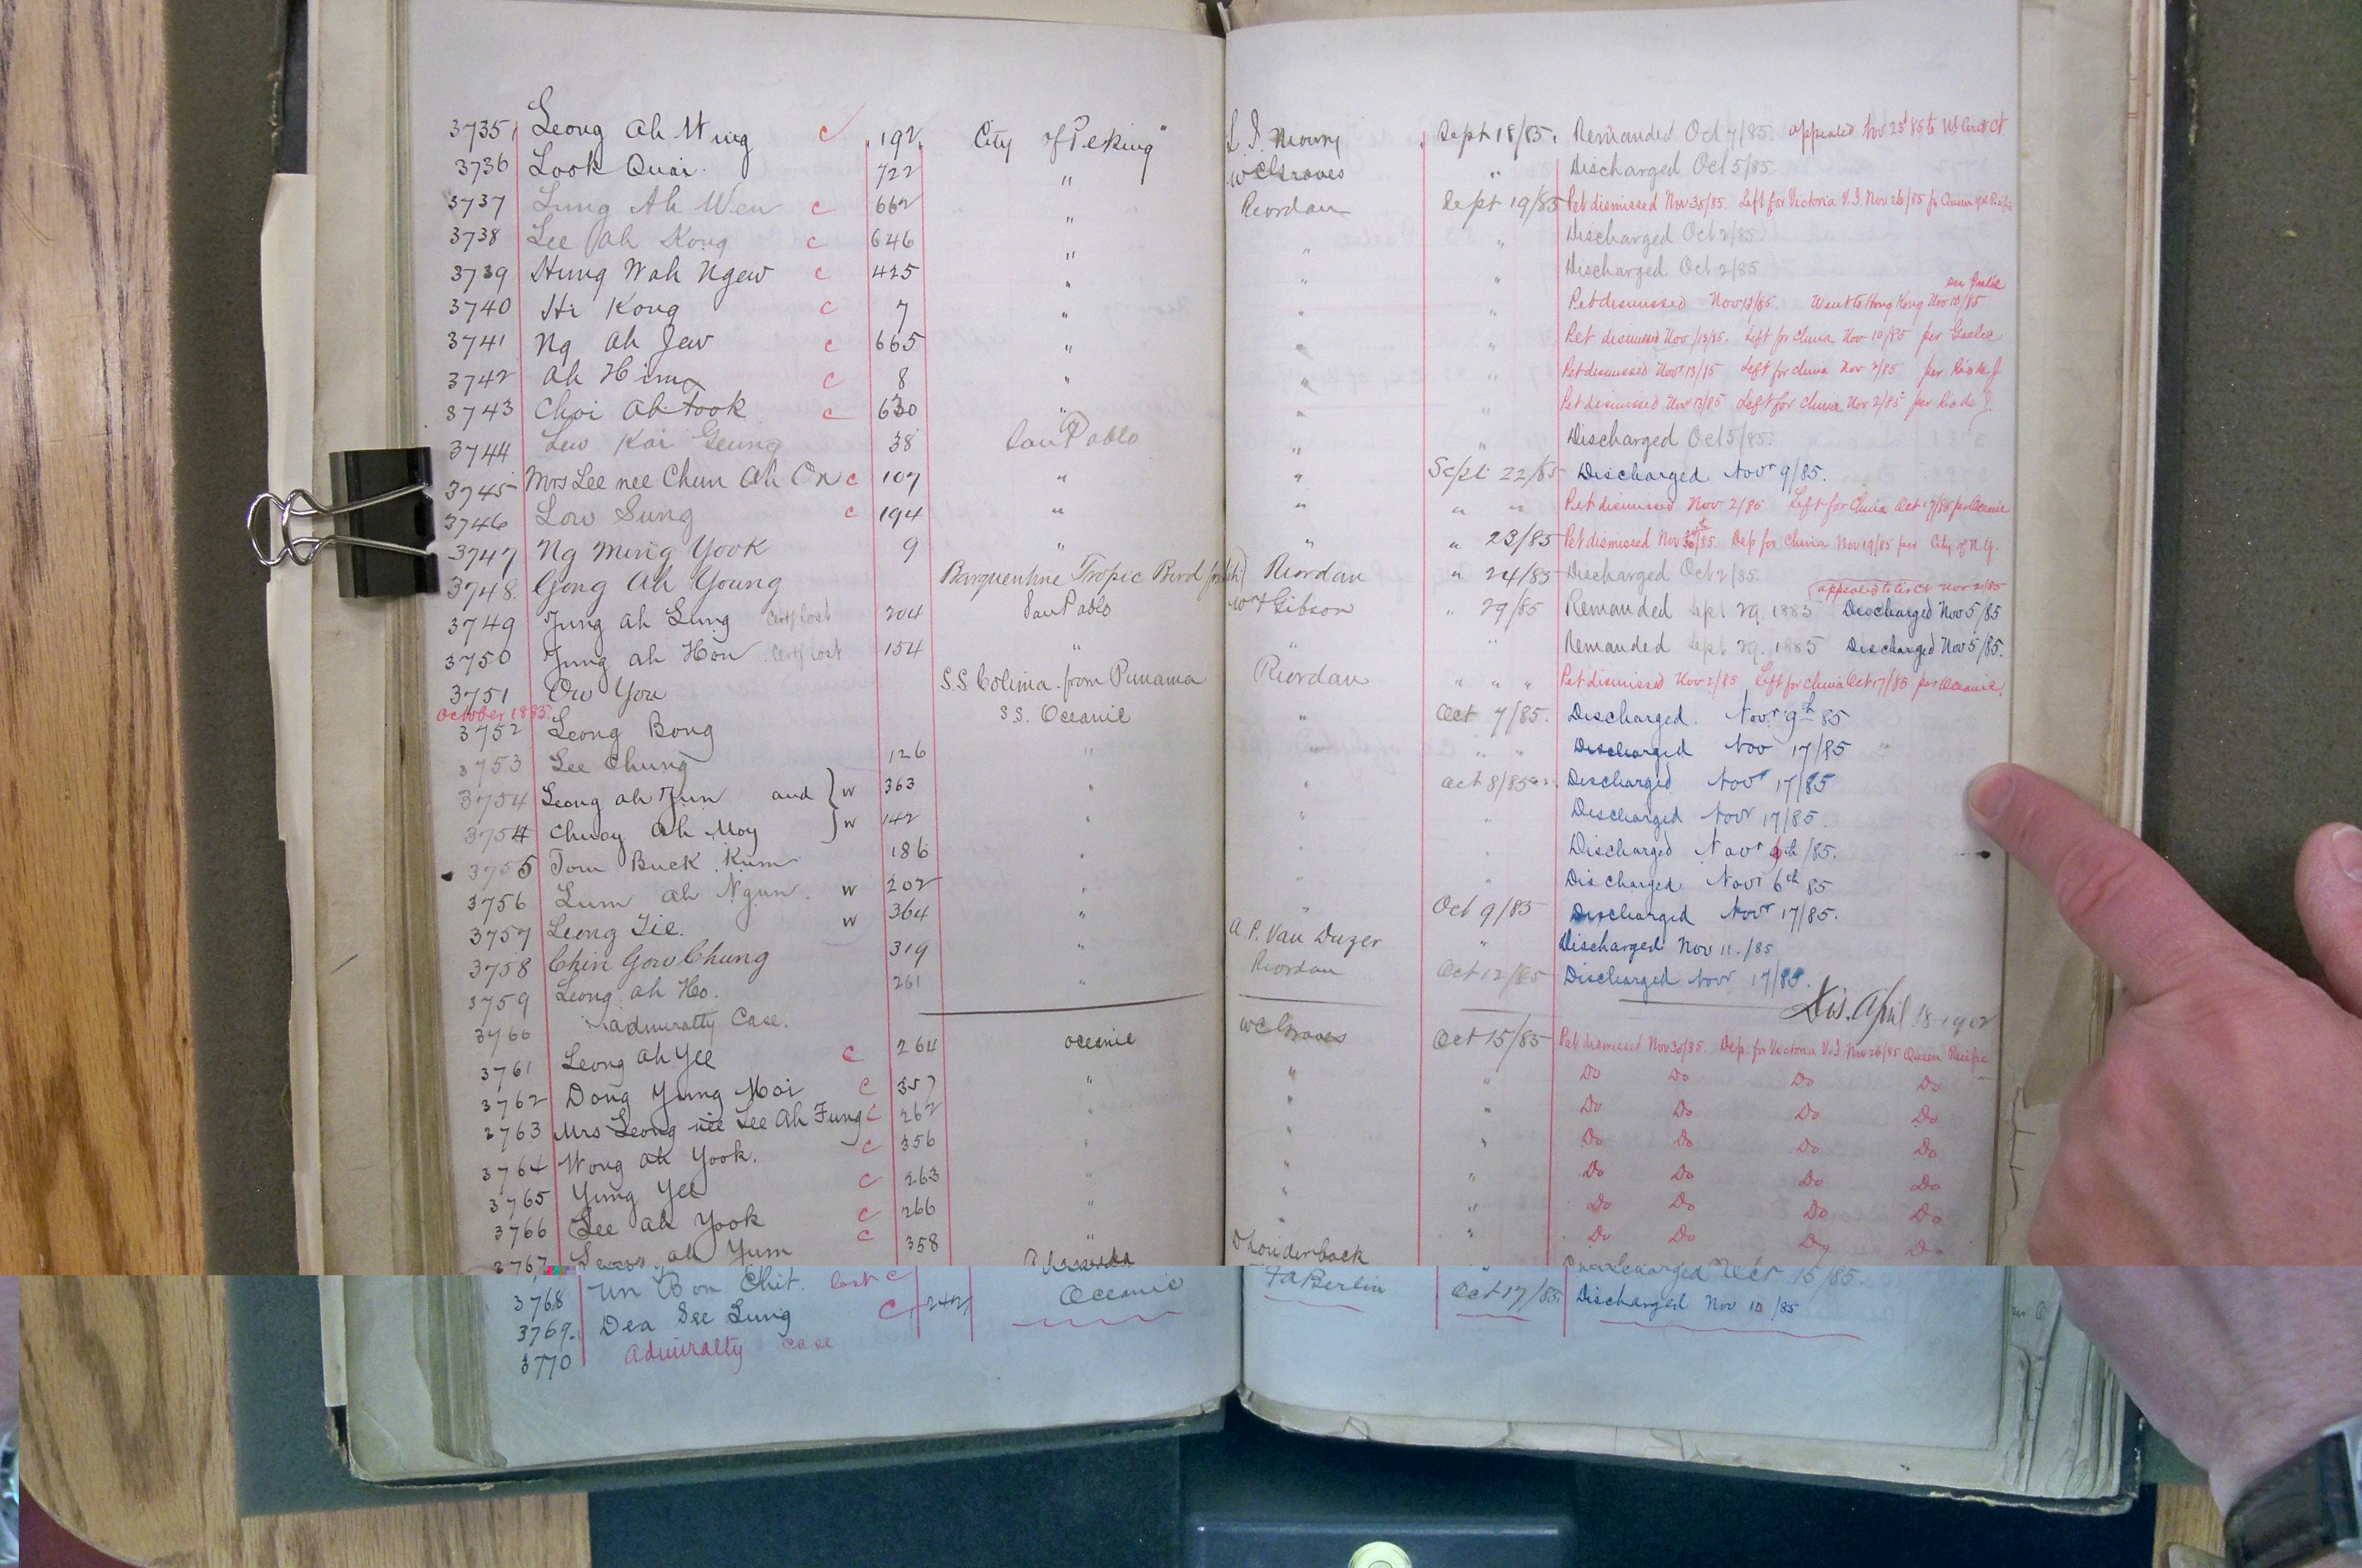 3735 Leong Ah Wing c 192 City of Peking" Sept 18/85. Remanded Oct 7/85. appealed Nov 23d 85 to US Circt Ct.
3736 Look Quai. 722 " WC Graves " Discharged Oct 5/85
3737 Lung Ah Wen c 662 " Riordan Sept 19/85 Pet dismissed Nov 30/85. Left for Victoria V.I. Nov 26/85 pr Queen of the Pacific
3738 Lee Ah Kong c 646 " " " Discharged Oct 2/85
3739 Hung Wah Ngew c 425 " " " Discharged Oct 2/85
3740 Hi Kong c 7 " " " Pet dismissed Nov 13/85. Went to Hong Kong Nov 10/85
3741 Ng Ah Jew c 665 " " " Pet dismissed Nov 13/85. Left for China Nov 10/85 per Gaelic
3742 Ah Him c 8 " " " Pet dismissed Nov 13/85 Left for China Nov 2/85 per Rio de J
3743 Choi Ah took c 630 " " " Pet dismissed Nov 13/85 Left for China Nov 2/85 per Rio de J.
3744 Lew Kai Geung 38 San Pablo " " Discharged Oct 5/85.
3745 Mrs Lee nee Chun Ah On c 107 " " Sept 22/85 Discharged Novr 9/85.
3746 Low Sung c 194 " " " " Pet dismissed Nov 2/85 Left for China Oct 17/85 per Oceanic
3747 Ng Ming Yook 9 " " " 23/85 Pet dismissed Nov 30/85. Dep for China Nov 19/85 per City of N.Y.
3748. Gong Ah Young Barquentine Tropic Bird Riordan " 24/85 Discharged Oct 2/85.
appealed to Cir Ct Nov 2/85
3749 Jung Ah Lung Certf lost 204 San Pablo Wm Gibson " 29/85 Remanded Sept 29. 1885 Discharged Nov 5/85
3750 Jung Ah Hon Certf lost 154 " " " Remanded Sept 29. 1885 Discharged Nov 5/85.
3751 Ow You S.S. Colima from Panama Riordan " " " Pet dismissed Nov 2/85 Left for China Oct 17/85 per Oceanic.
October 1885.
3752 Leong Bong S.S. Oceanic " Oct 7/85. Discharged. Novr 9th 85
3753 Lee Chung 126 " " " " Discharged Nov 17/85
3754 Leong Ah Jun and } w 363 " " Oct 8/85 Discharged Novr 17/85
3754 Chuoy Ah Moy } w 142 " " " Discharged Novr 17/85.
3755 Tom Buck Kum 186 " " " Discharged Novr 6th /85.
3756 Lum Ah Ngun. w 202 " " " Discharged Novr 6th 85
3757 Leong Tie. w 364 " " Oct 9/85 Discharged Novr 17/85.
3758 Chin Gow Chung 319 " A. P. Van Duzer " Discharged Nov 11./85
3759 Leong Ah Ho. 261 " Riordan Oct 12/85 Discharged Novr 17/85.
3760 Admiralty Case. Dis. April 18-1902
3761 Leong Ah Yee c 264 Oceanic WC Graves Oct 15/85 Pet dismissed Nov 30/85. Dep. for Victoria V.I. Nov 26/85 Queen Pacific
3762 Dong Yung Moi c 357 " " " Do Do Do Do
3763 Mrs Leong nee Lee Ah Fung c 262 " " " Do Do Do Do
3764 Wong Ah Yook. c 356 " " " Do Do Do Do
3765 Yung Yee c 263 " " " Do Do Do Do
3766 Lee Ah Yook c 266 " " " Do Do Do Do
3767 Ah Yum c 358 " " " Do Do Do Do
3768 Un Bon Chit. lost c Louderback Oct 15/85.
3769. Dea See Lung c 242 Oceanic FA Berlin Oct 17/85 Discharged Nov 12/85
3770 Admiralty case